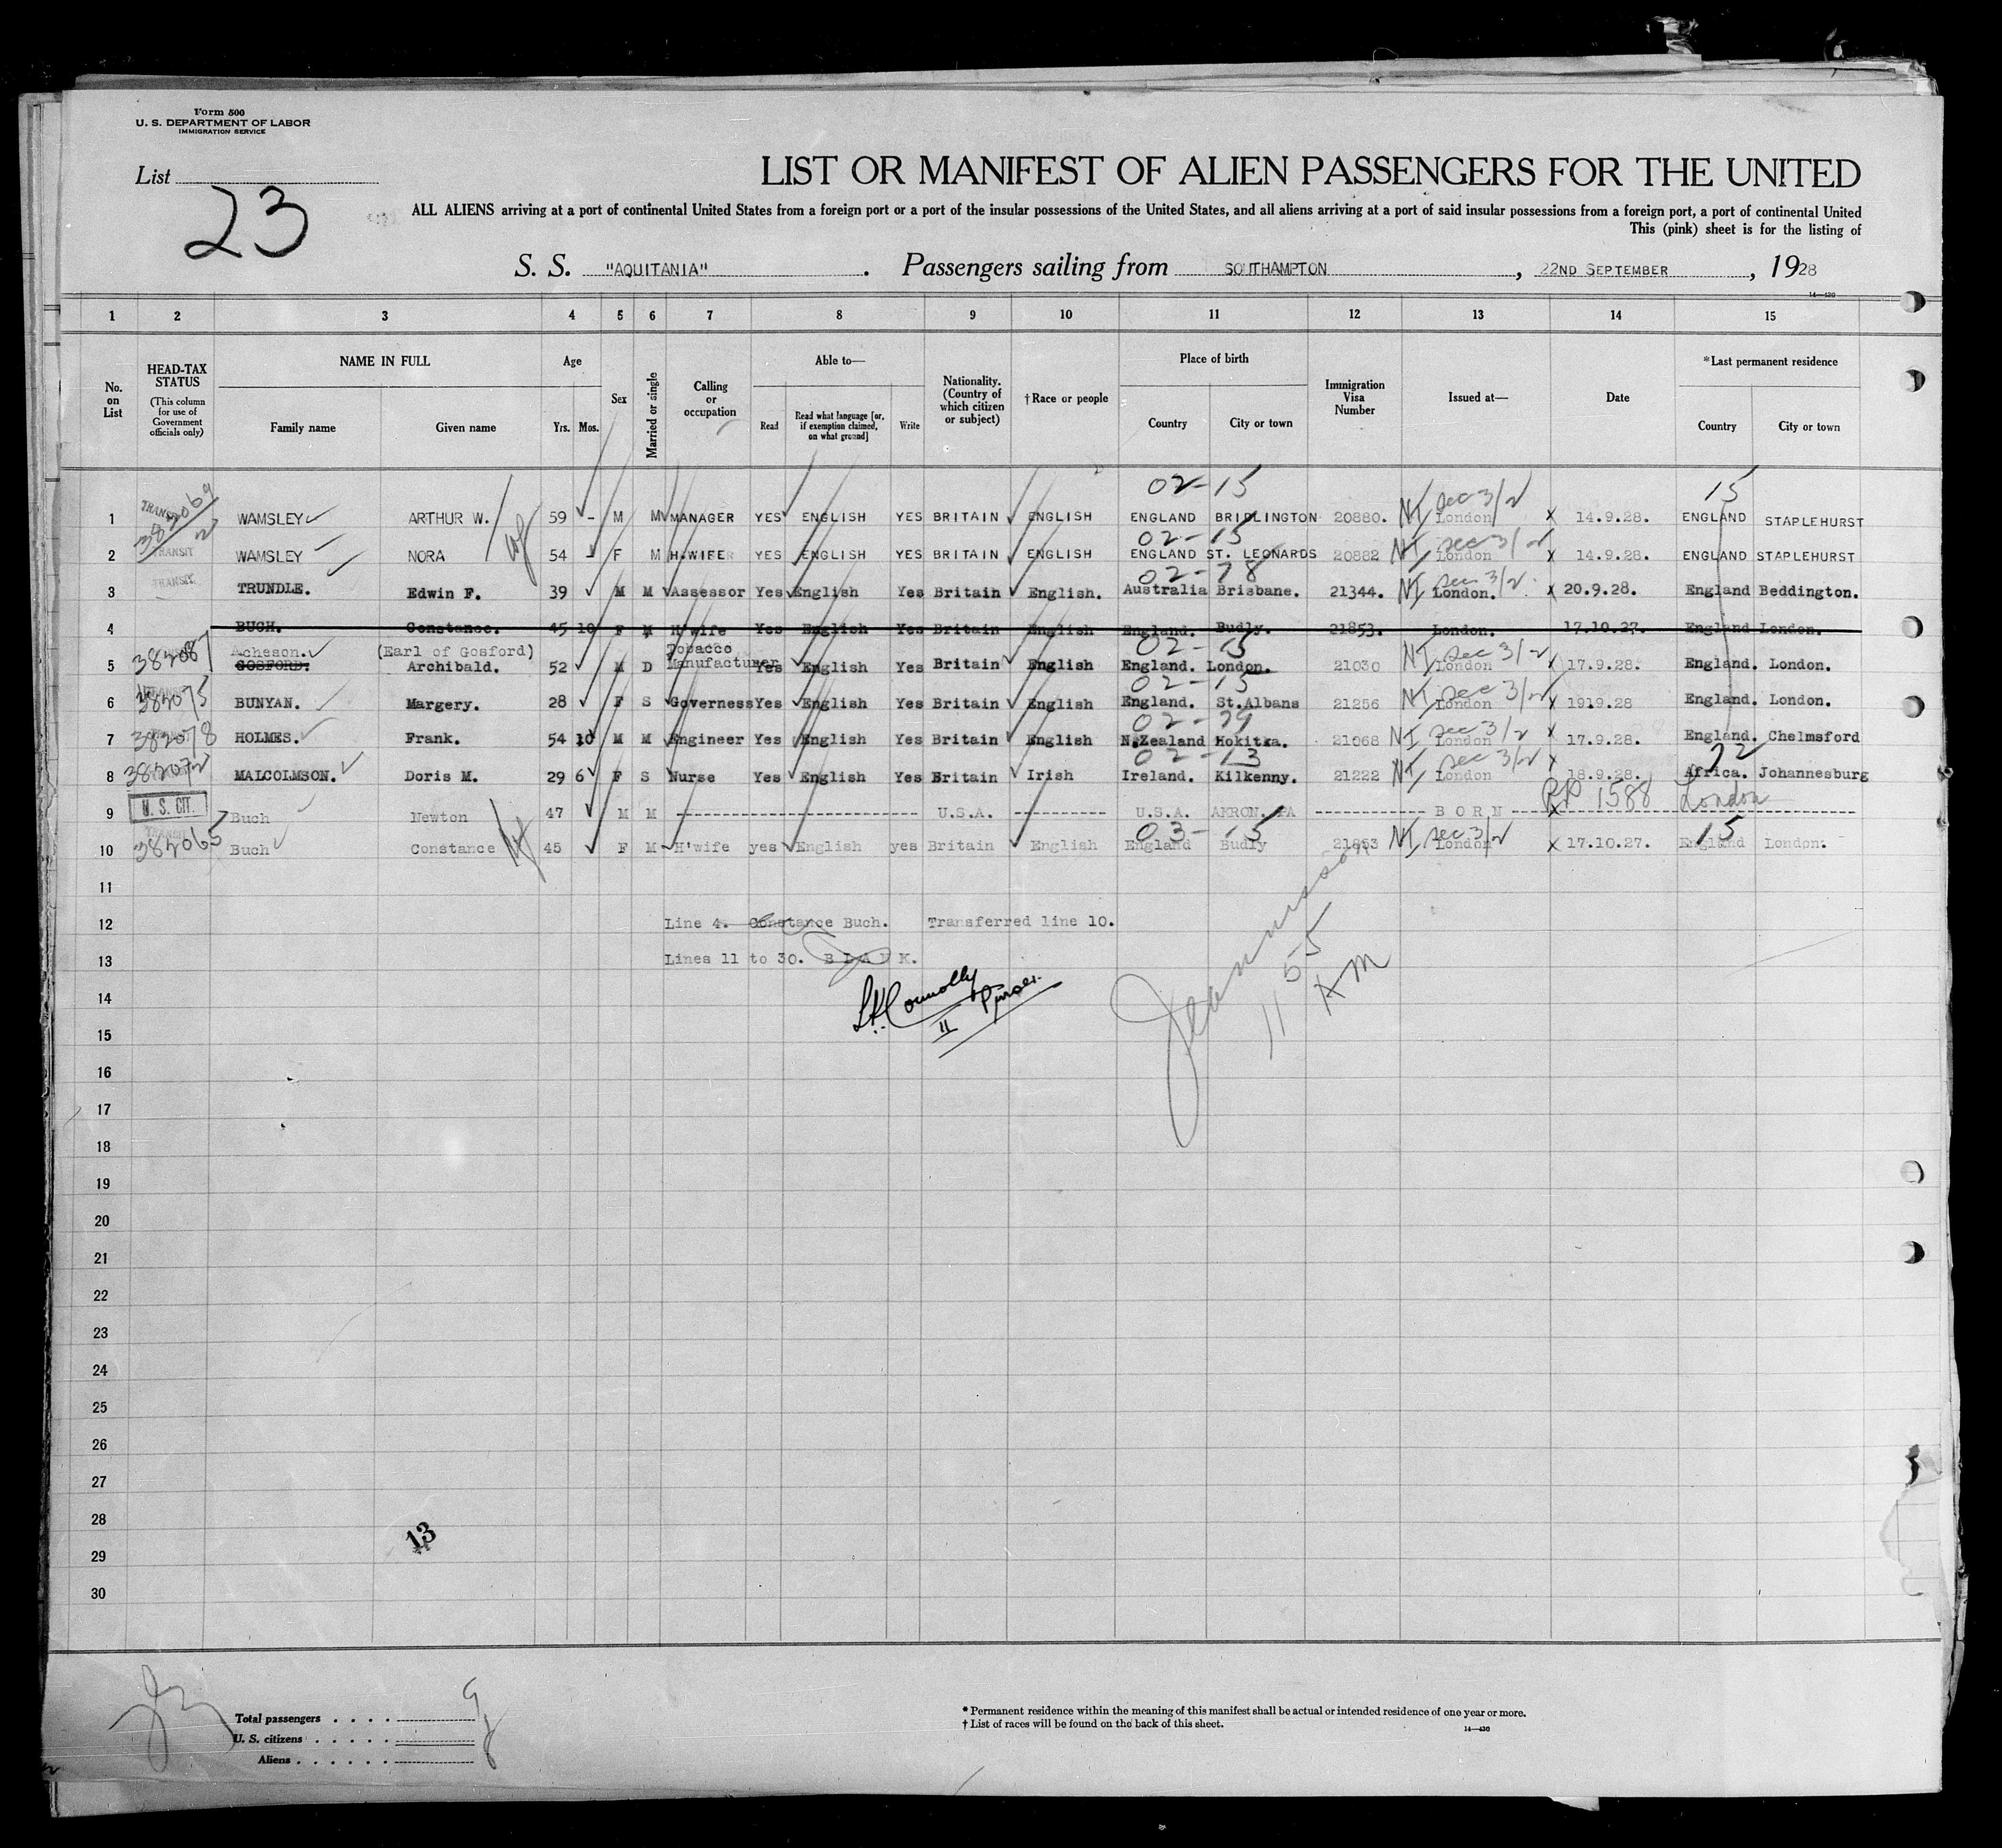 Form 500
U. S. DEPARTMENT OF LABOR
IMMIGRATION SERVICE
List
23
LIST OR MANIFEST OF ALIEN PASSENGERS FOR THE UNITED
ALL ALIENS arriving at a port of continental United States from a foreign port or a port of the insular possessions of the United States, and all aliens arriving at a port of said insular possessions from a foreign port, a port of continental United
This (pink) sheet is for the listing of
S. S. "AQUITANIA" . Passengers sailing from SOUTHAMPTON , 22ND SEPTEMBER , 1928
14—430
1 2 3 4 5 6 7 8 9 10 11 12 13 14 15
No. on List
HEAD-TAX STATUS
(This column for use of Government officials only)
NAME IN FULL
Family name Given name
Age
Yrs. Mos.
Sex
Married or single
Calling or occupation
Able to—
Read Read what language [or, if exemption claimed, on what ground] Write
Nationality. (Country of which citizen or subject)
†Race or people
Place of birth
Country City or town
Immigration Visa Number
Issued at—
Date
*Last permanent residence
Country City or town
02-15 15
1 TRANSIT WAMSLEY ARTHUR W. 59 - M M MANAGER YES ENGLISH YES BRITAIN ENGLISH ENGLAND BRIDLINGTON 20880. NI Sec 3/2 London 14.9.28. ENGLAND STAPLEHURST
02-15
2 TRANSIT WAMSLEY NORA 54 - F M H.WIFE YES ENGLISH YES BRITAIN ENGLISH ENGLAND ST. LEONARDS 20882 NI Sec 3/2 London 14.9.28. ENGLAND STAPLEHURST
02-78
3 TRANSIT TRUNDLE. Edwin F. 39 M M Assessor Yes English Yes Britain English. Australia Brisbane. 21344. NI Sec 3/2 London. 20.9.28. England Beddington.
4 BUCH. Constance. 45 10 F M H'wife Yes English Yes Britain English England. Budly. 21853. London. 17.10.27. England London.
Acheson. (Earl of Gosford) Tobacco 02-15
5 382087 GOSFORD. Archibald. 52 M D Manufacturer Yes English Yes Britain English England. London. 21030 NI Sec 3/2 London 17.9.28. England. London.
02-15
6 382075 BUNYAN. Margery. 28 F S Governess Yes English Yes Britain English England. St.Albans 21256 NI Sec 3/2 London 1919.28 England. London.
02-79
7 382078 HOLMES. Frank. 54 10 M M Engineer Yes English Yes Britain English N.Zealand Hokitka. 21068 NI Sec 3/2 London 17.9.28. England. Chelmsford
02-13 72
8 382072 MALCOLMSON. Doris M. 29 6 F S Nurse Yes English Yes Britain Irish Ireland. Kilkenny. 21222 NI Sec 3/2 London 18.9.28. Africa. Johannesburg
9 U. S. CIT. Buch Newton 47 M M U.S.A. U.S.A. AKRON. PA BORN 1588 London
03-15 15
10 382065 Buch Constance 45 F M H'wife yes English yes Britain English England Budly 21853 NI Sec 3/2 London 17.10.27. England London.
11
12 Line 4. Constance Buch. Transferred line 10.
13 Lines 11 to 30. B L A N K.
Connolly
II Purser.
11 55
AM
14
15
16
17
18
19
20
21
22
23
24
25
26
27
28
13
29
30
Total passengers . . . .
U. S. citizens . . . . .
Aliens . . . . . .
* Permanent residence within the meaning of this manifest shall be actual or intended residence of one year or more.
† List of races will be found on the back of this sheet.
14—430